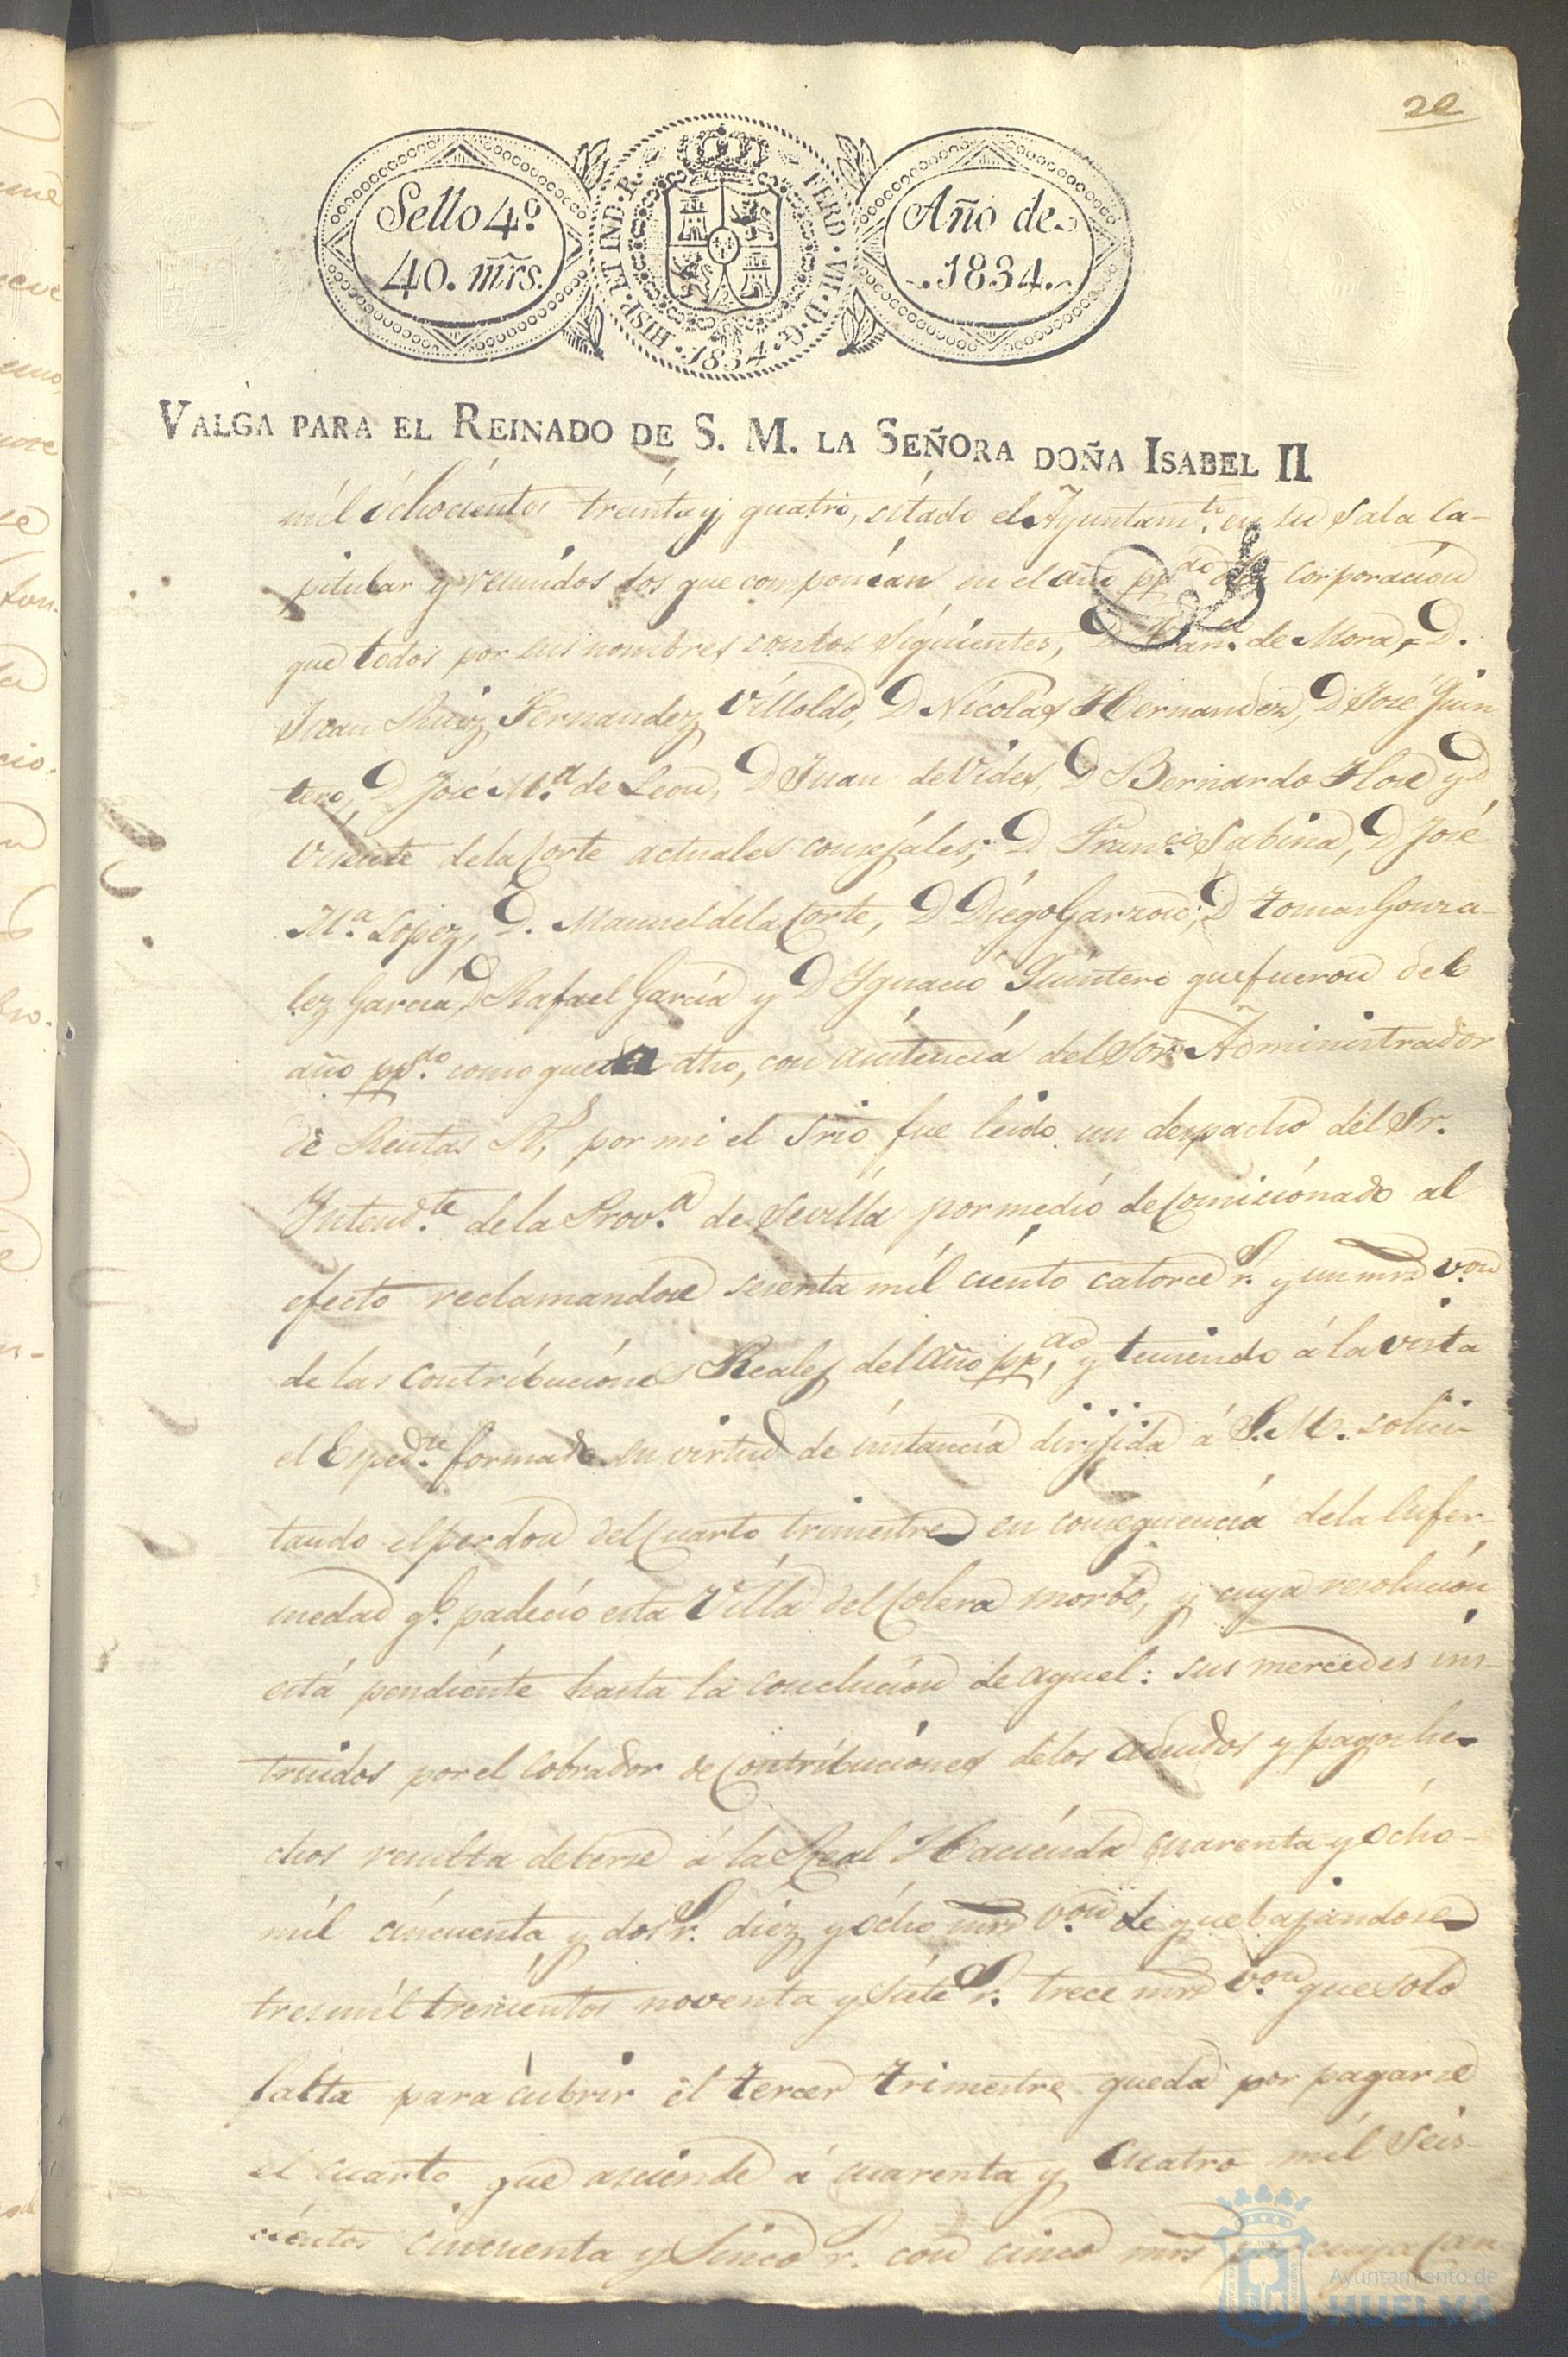 20
Sello 4º
40. mrs.
HISP. ET IND. R. FERD. VII. D. G. 1834
Año de
1834.
VALGA PARA EL REINADO DE S. M. LA SEÑORA DOÑA ISABEL II
mil ochocientos treinta y quatro, sitado el Ayuntam.to en su Sala Ca-
pitular y reunidos los que componian en el año pp.do Corporacion
que todos por sus nombres son los siguientes, D. de Mora, D.
Juan Ruiz Fernandez Villoldo, D Nicolas Hernandez, D José Quin
tero, D José M.a de Leon, D Juan de Vides, D Bernardo Flor y D
Visente de la Corte actuales consejales; D Fran.co Sabina, D José
M.a Lopez, D. Manuel de la Corte, D Diego Garzon, D Tomas Gonza-
lez Garcia, D Rafael Garcia y D Ygnacio Quintero que fueron del
año pp.do como queda dho, con asistencia del Sor Administrador
de Rentas R.s por mi el Srio fue leido un despacho del Sr.
Yntend.te de la Prov.a de Sevilla por medio de Comicionado al
efecto reclamandose sesenta mil ciento catorce r.s y un mrs v.on
de las contribuciones Reales del año pp.do, y teniendo á la vista
el Esped.te formado en virtud de instancia dirijida á S. M. solici-
tando el perdon del Cuarto trimestre en consequencia de la Enfer-
medad q.e padecio esta Villa del Colera morbo, y cuya resolucion
está pendiente hasta la conclucion de aquel: sus mercedes ins-
truidos por el Cobrador de Contribuciones de los adeudos y pagos he-
chos resulta deberse á la Real Hacienda cuarenta y ocho-
mil cincuenta y dos r.s diez y ocho mrs v.on de que bajandose
tres mil trescientos noventa y siete r.s trece mrs v.on que solo
falta para cubrir el tercer trimestre queda por pagarse
el cuarto que asciende á cuarenta y Cuatro mil Seis-
cientos cincuenta y Sinco r.s con cinco mrs por cuya can
Ayuntamiento de
HUELVA